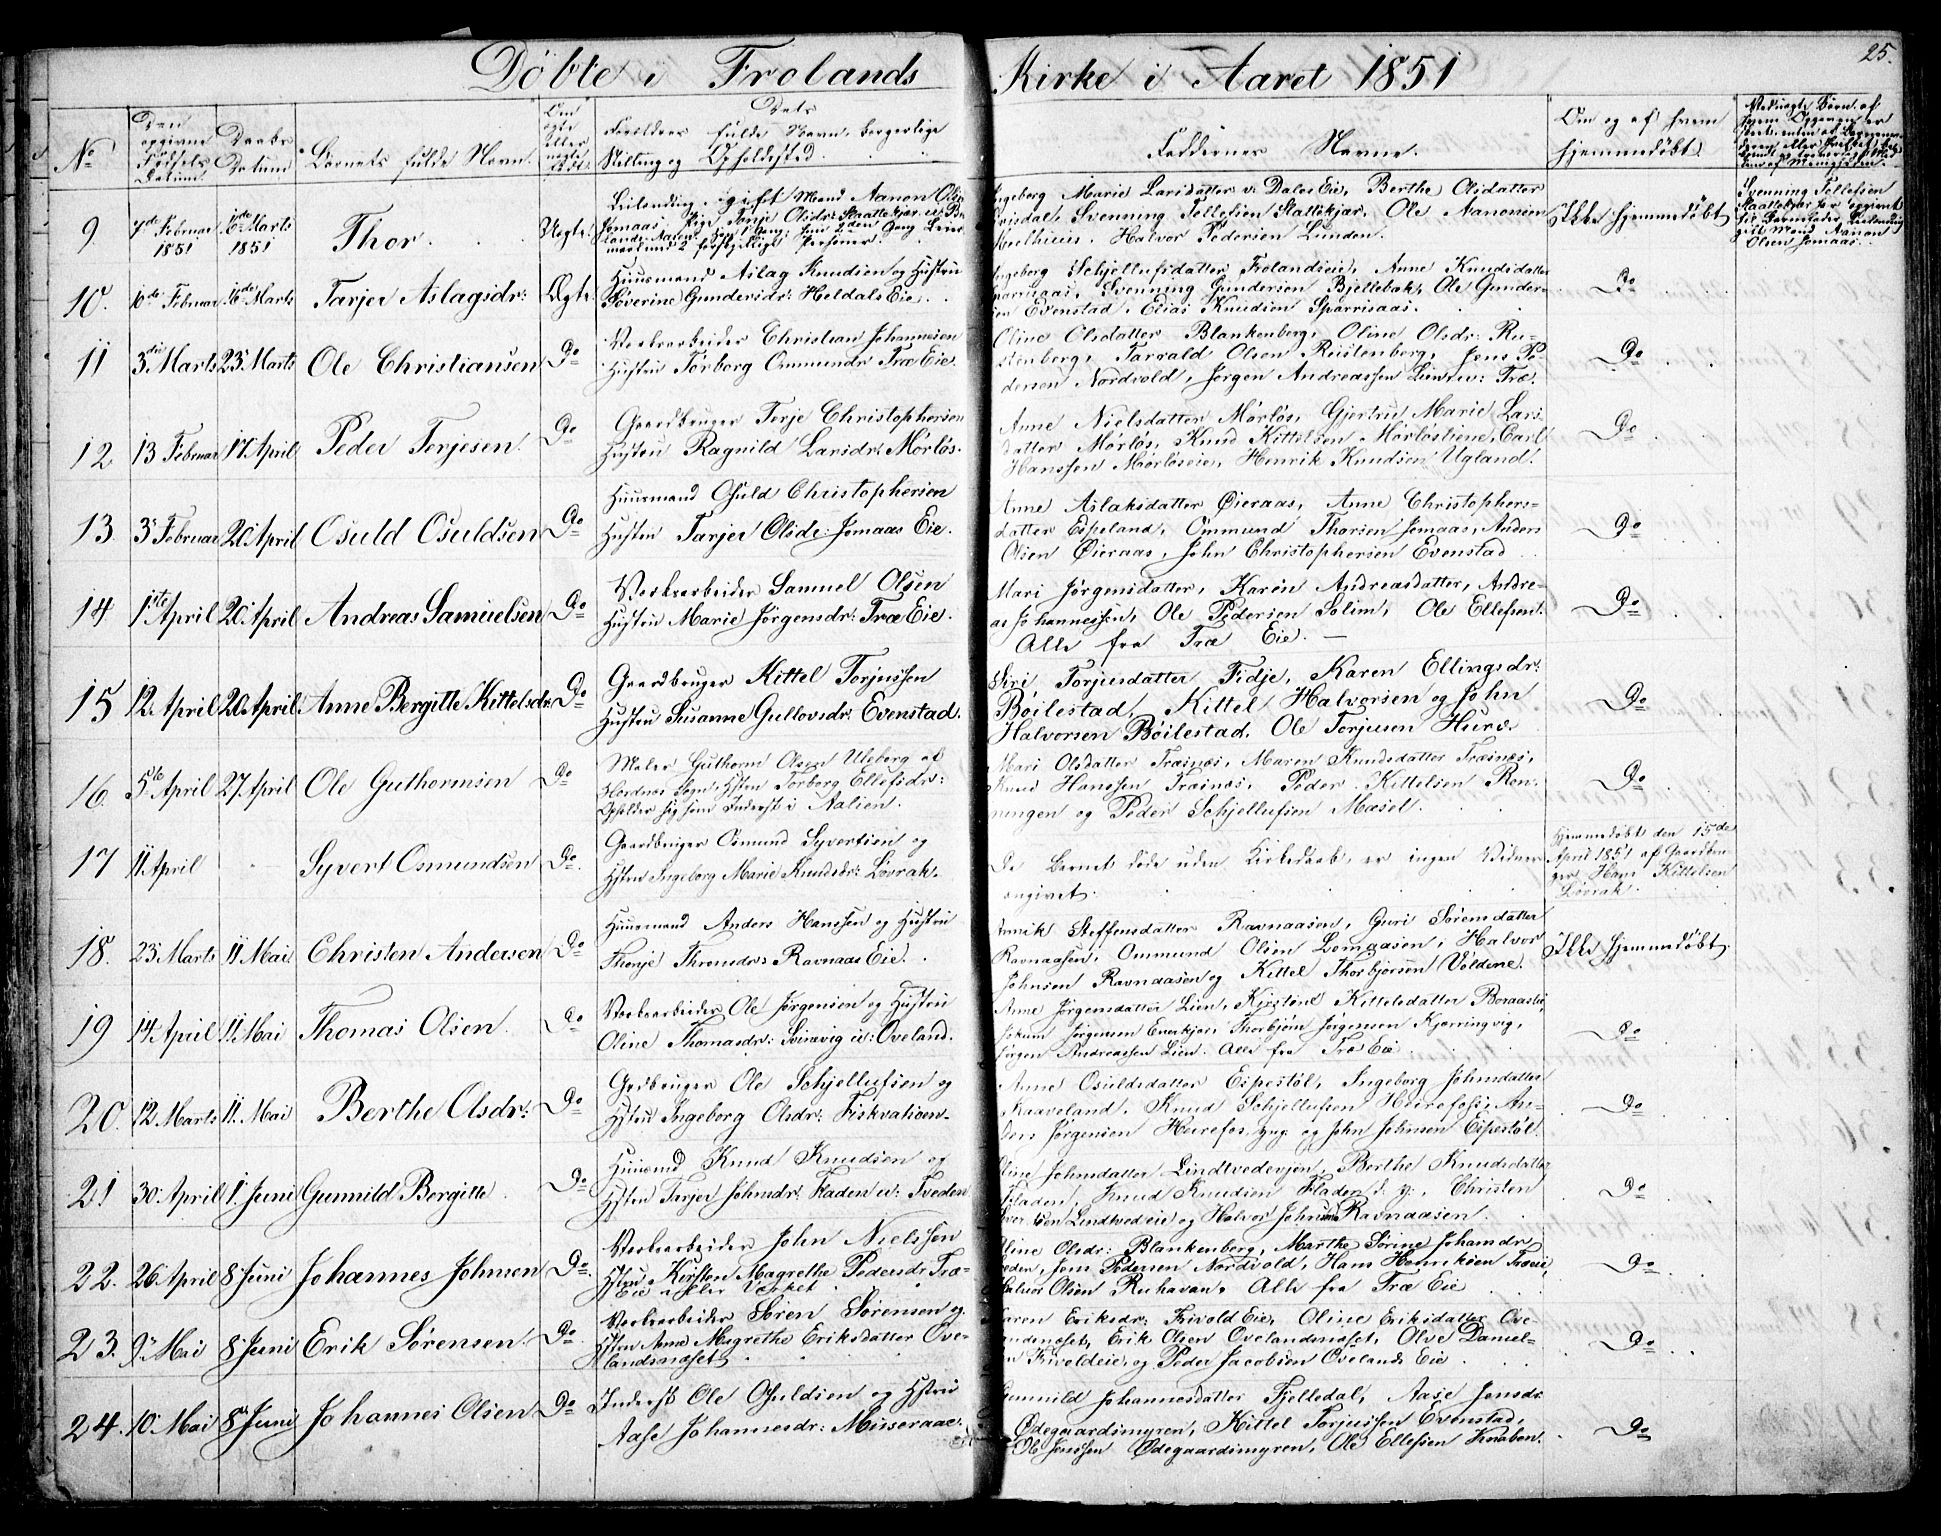 Döbte i Frolands Kirke i Aaret 1851
25.
No
Den opgivne Födsels Datum
Daabs Datum
Barnets fulde Navn.
Om ægte eller uægte
Dets Forældres fulde Navn, borgerlige Stilling og Opholdssted.
Faddernes Navne.
Om og af hvem hjemmedöbt.
9
7de Februar 1851
16de Marts 1851
Thor.
Uegte.
gift Mand Aanon Olsen
Jomaas Pige Tarje Olsdr: Staattekjær
Ingeborg Marie Larsdatter v: Dales Eie, Berthe Olsdatter
Svenning Tellefsen Stattekjær, Ole Aanonsen
Halvor Pedersen Lunden.
Ikke hjemmedöbt
Svenning Tellefsen
Olsen Jomaas.
10.
16de Februar
16de Marts
Tarjer Aslagsdr:
Ægte.
Huusmand Aslag Knudsen og Hustru
Severine Gundersdr: Heldals Eie.
Ingeborg Schjellufsdatter Frolandseie, Anne Knudsdatter
Sparrsaas, Svenning Gundersen Bjellebak, Ole Gunder-
sen Evenstad, Elias Knudsen Sparrsaas.
Do
11
3die Marts
23 Marts
Ole Christiansen
Do
Verksarbeider Christian Johannesen
Hustru Torborg Ommundr: Træ Eie.
Oline Olsdatter Blankenberg, Oline Olsdr: Ru-
stenberg, Tarrald Olsen Rustenberg, Jens Pe-
dersen Nordvold, Jørgen Andreassen Lien u: Træ.
Do
12
13 Februar
17 April
Peder Terjesen.
Do
Gaardbruger Terje Christophersen
Hustru Ragnild Larsdr: Mörlös.
Anne Nielsdatter Mörlös, Gjertru Marie Lars
datter Mörlös, Knud Kittelsen Mörlöstiene, Carl
Hanssen Mörlöseie, Henrik Knudsen Ugland.
Do
13.
3 Februar
20 April
Osuld Osuldsen
Do
Huusmand Osuld Christophersen
Hustru Tarjer Olsdr: Jomaas Eie.
Anne Aslaksdatter Øieraas, Anne Christophers-
datter Espeland, Ommund Thorsen Jomaas, Anders
Olsen Øieraas, John Christophersen Evenstad
Do
14
1ste April
20 April
Andreas Samuelsen
Do
Verksarbeider Samuel Olsen
Hustru Marie Jørgensdr: Træ Eie.
Mari Jørgensdatter, Karen Andreasdatter, Andre-
as Johannessen, Ole Pedersen Solim, Ole Ellefsen.
Alle fra Træ Eie. —
Do
15
12. April
20 April
Anne Bergitte Kittelsdr:
Do
Gaardbruger Kittel Torjussen
Hustru Susanne Gullovsdr: Evenstad.
Siri Torjusdatter Fidje, Karen Ellingsdr:
Böilestad, Kittel Halvorsen og John
Halvorsen Böilestad, Ole Torjusen Hurv.
Do
16
5te April
27 April
Ole Guthormsen
Do
Maler Guthorm Olsen Uleberg af
Hordnes Sogn, Hstru Torborg Ellefsdr:
Opholder sig som Inderst i Aalien.
Mari Olsdatter Træinæs, Maren Knudsdatter Træinæs,
Knud Hanssen Træinæs, Peder Kittelsen Ren-
ningen og Peder Schjellufsen Mæsel.
Do
17
11 April
Syvert Osmundsen
Do.
Gaardbruger Osmund Syvertsen og
Hstru Ingeborg Marie Knudsdr: Lövrak.
Da Barnet döde uden Kirkedaab, er ingen Vidner
angivet.
Hjemmedöbt den 15de
April 1851 af Gaardbru-
ger Hans Kittelsen
Lövrak.
18.
23 Marts
11 Mai
Christen Andersen
Do
Huusmand Anders Hanssen og Hustru
Thenje Thromdr: Ravnaas Eie.
Steffensdatter Ravnaasen, Guri Sörensdatter
Ravnaasen, Ommund Olsen Lomaasen, Halvor
Johnsen Ravnaasen og Kittel Thorbjorsen Voldene.
Ikke hjemmedöbt.
19
14 April
11 Mai
Thomas Olsen.
Do
Verksarbeider Ole Jørgensen og Hustru
Oline Thomasdr: Svinevig u: Oveland.
Anne Jørgensdatter Lien, Kirstene Kittelsdatter
Jokum Jørgensen Thorbjørn Jørgensen Kjærringvig,
Jørgen Andreassen Lien. Alle fra Træ Eie.
Do
20.
12 Marts
11. Mai
Berthe Olsdr:
Do
Grdbruger Ole Schjellufsen og
Hstru Ingeborg Olsdr: Fiskvatnen.
Anne Osuldsdatter Espestöl, Ingeborg Johnsdatter
Kaaveland, Knud Schjellufsen Heirefoss, An-
ders Jørgensen Heirefos og John Johnsen Espestöl.
Do
21
30 April
1. Juni
Gunnild Bergitte.
Do
Huusmd Knud Knudsen og
Hstru Tarjer Johnsdr: Fladen u: Tveden
Oline Johnsdatter Lindtvedeien, Berthe Knudsdatter
Fladen, Knud Knudsen Fladen d. y:, Christen
Lindtvedeie og Halvor Johnsen Ravnaasen.
Do
22.
26 April
8 Juni
Johannes Johnsen
Do.
Verksarbeider John Nielssen
Hstru Kirsten Magrethe Pedersdr Træ-
Eie eller Værket
Oline Olsdr: Blankenberg, Marthe Sörine Johansdr
Jens Pedersen Nordvold, Hans Henriksen Træeie,
Halvor Olsen Ruhavan, Alle fra Træ Eie
Do
23.
9. Mai
8 Juni
Erik Sørensen
Do.
Verksarbeider Søren Sørensen og
Hstru Anne Magrethe Eriksdatter Ove-
landsnæset
Karen Eriksdr: Frivold Eie, Oline Eriksdatter Ove-
landsnæset, Erik Olsen Ovelandsnæset, Olve Daniel-
sen Frivoldeie, og Peder Jacobsen Ovelands Eie
Do
24.
10 Mai
8 Juni
Johannes Olsen
Do
Inderst Ole Osuldsen og Hstru
Aase Johannesdr: Misseraas.
Gunnild Johannesdatter Fjelledal, Aase Jensdr
Ødegaardsmyren, Kittel Torjussen Evenstad,
Ole Jenssen Ødegaardsmyren, Ole Ellefsen Knaben.
Do